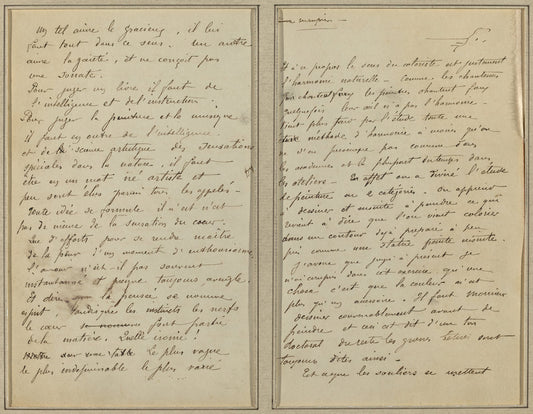 Un tel aime le gracieux, il lui
faut tout dans ce sens. Un autre
aime la gaieté, et ne conçoit pas
une sonate.
Pour juger un livre il faut de
l'intelligence et de l'instruction.
Pour juger la peinture et la musique
il faut en outre de l'intelligence
et de la science artistique des sensations
spéciales dans la nature il faut
être en un mot né artiste et
peu sont élus parmi tous les appelés.
Toute idée se formule il n'est n'est
pas de même de la sensation du cœur.
Que d'efforts pour se rendre maître
de la peur d'un moment d'enthousiasme
l'amour n'est il pas souvent
instantané et presque toujours aveugle.
Et dire que la pensée se nomme
esprit tandis que les instincts les nerfs
le cœur font partie
de la matière. Quelle ironie!
Le plus vague
le plus indéfinissable le plus varié
une
Et à ce propos le sens du coloriste est justement
l'harmonie naturelle. Comme les chanteurs
chantent faux les peintres chantent faux
leur œil n'a pas l'harmonie.
Vient plus tard par l'étude toute une
méthode d'harmonie à moins qu'on
ne s'en préoccupe pas comme dans
les académies et la plupart du temps dans
les ateliers. En effet on a divisé l'étude
de peinture en 2 catégories. On apprend
à dessiner et ensuite à peindre ce qui
revient à dire que l'on vient colorier
dans un contour déjà préparé à peu
près comme une statue peinte ensuite.
J'avoue que jusqu'à présent je
n'ai compris dans cet exercice qu'une
chose c'est que la couleur n'est
plus qu'un accessoire. Il faut monsieur
dessiner convenablement avant de
peindre et ceci est dit d'un ton
doctoral du reste les grosses bêtises sont
toujours dites ainsi.
Est ce que les souliers se mettent